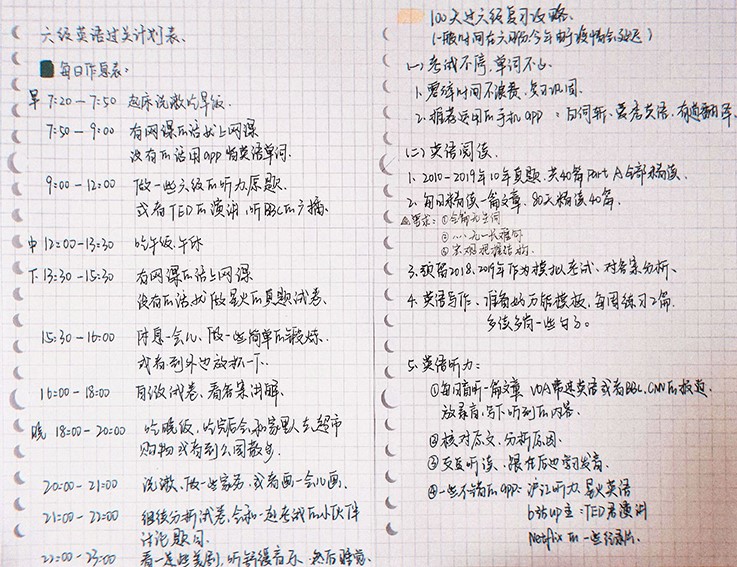 六级英语过关计划表.
每日作息表:
早 7:20-7:50 起床洗漱吃早饭.
7:50-9:00 有网课的话就上网课
没有的话用app背英语单词.
9:00-12:00 做一些六级的听力原题.
或者TED的演讲,听BBC的广播.
中 12:00-13:30 吃午饭、午休
下 13:30-15:30 有网课的话上网课
没有的话就做星火的真题试卷.
15:30-16:00 休息一会儿、做一些简单的锻炼.
或者到外边放松一下.
16:00-18:00 自做试卷、看答案讲解.
晚 18:00-20:00 吃晚饭,吃完后会和家里人去超市
购物或者到公园散步.
20:00-21:00 洗漱、做一些家务,或者画一会儿画.
21:00-22:00 继续分析试卷,会和一起考试的小伙伴
讨论题目.
22:00-23:00 看一些些美剧,听舒缓音乐、然后睡觉.
100天过六级复习攻略.
(一般时间在六月份今年由于疫情会延迟)
(一)考试不停,单词不止
1. 零碎时间不浪费、复习巩固.
2. 推荐运用的手机app: 百词斩、爱考英语、有道翻译.
(二)英语阅读.
1. 2010-2019年10年真题.共40篇Part A全部精读.
2. 每日精读一篇文章.80天精读40篇.
要求:①全部
②一长难句
③宏观把握结构.
3. 预留2018、2019年作为模拟考试、对答案分析.
4. 英语写作、准备好万能模板,每周练习2篇.
多读多背一些句子.
5. 英语听力:
①每日盲听一篇文章 VOA常速英语或者BBC、CNN的报道
放录音,写下听到的内容.
②核对原文,分析原因.
③交互听读、跟在后边学习发音.
④一些不错的app: 沪江听力、星火英语
b站up主:TED君演讲
Netflix的一些纪录片.